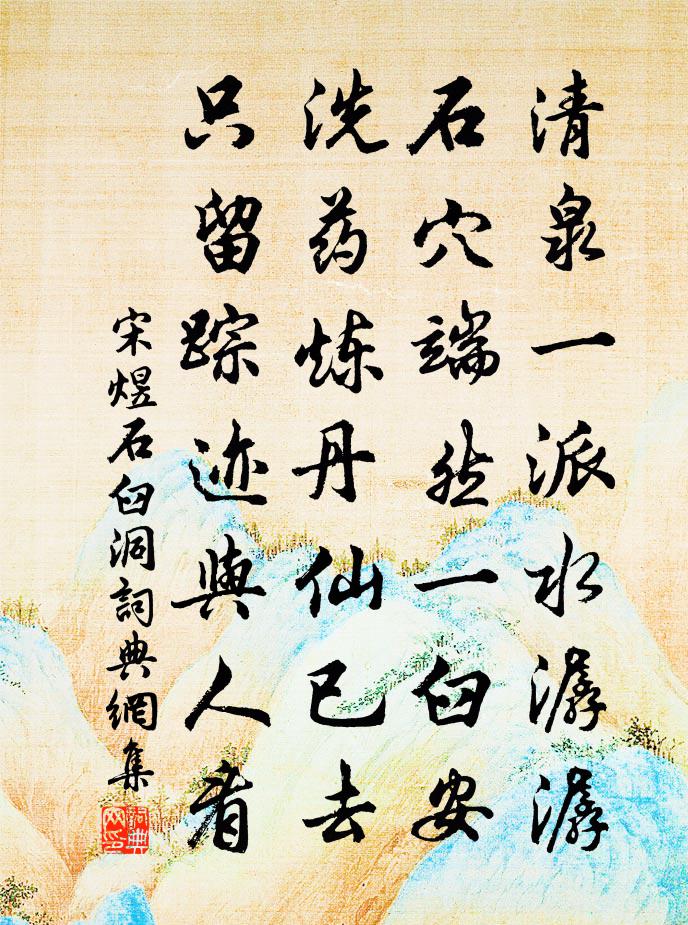 清泉一派水潺潺
石穴端然一臼安
洗药炼丹仙已去
只留踪迹與人看
宋煜石臼洞詞典網集
詞典網印